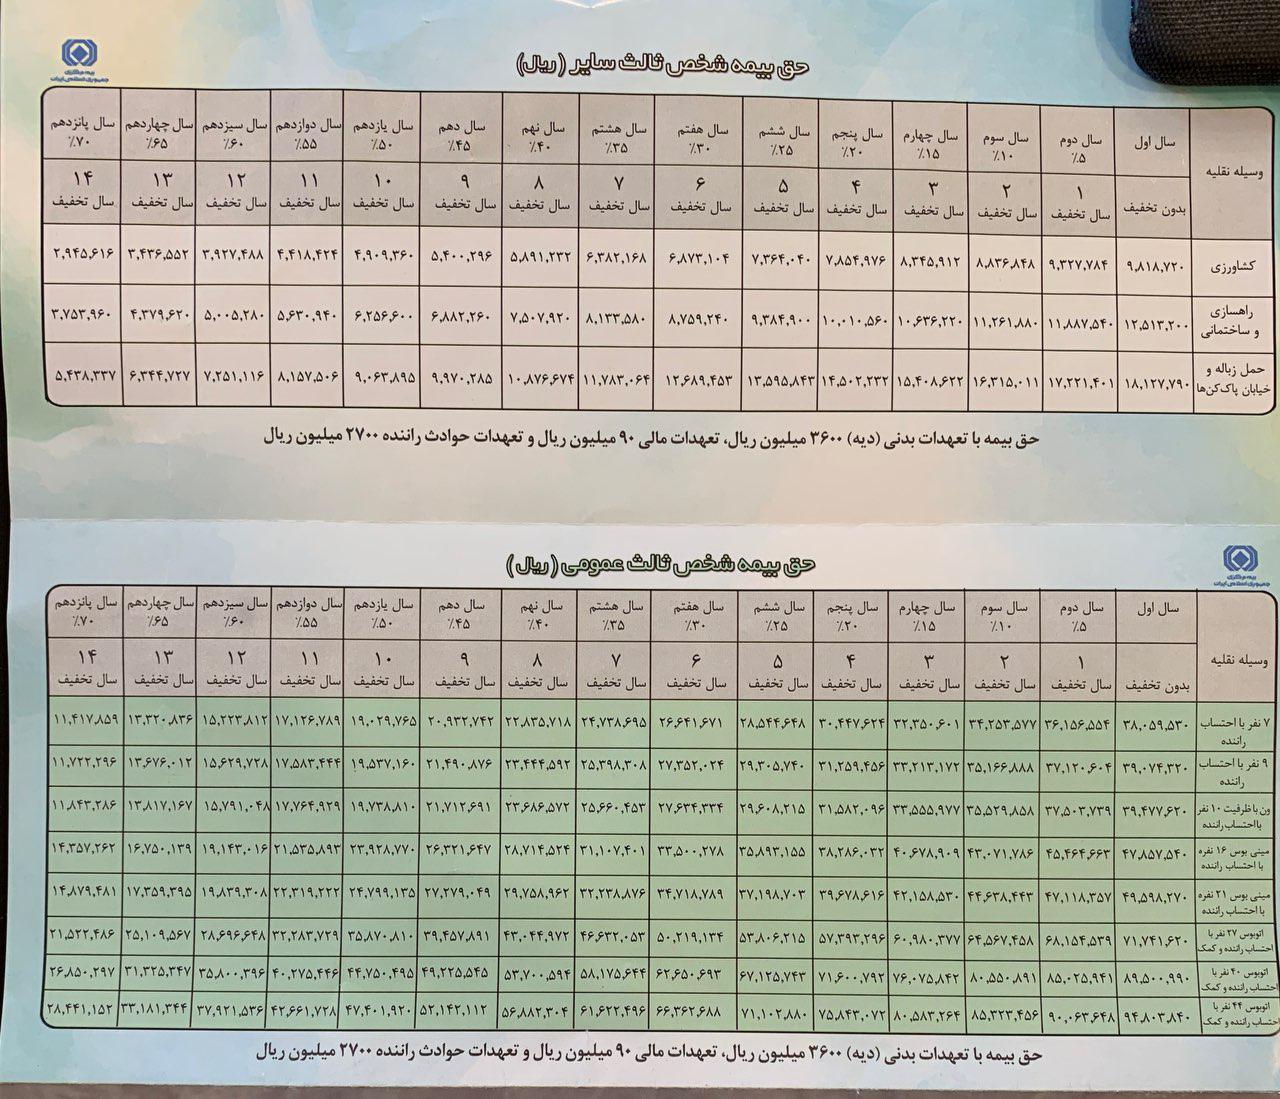 بیمه مرکزی
جمهوری اسلامی ایران
حق بیمه شخص ثالث سایر (ریال)
وسیله نقلیه | سال اول | سال دوم ٪۵ | سال سوم ٪۱۰ | سال چهارم ٪۱۵ | سال پنجم ٪۲۰ | سال ششم ٪۲۵ | سال هفتم ٪۳۰ | سال هشتم ٪۳۵ | سال نهم ٪۴۰ | سال دهم ٪۴۵ | سال یازدهم ٪۵۰ | سال دوازدهم ٪۵۵ | سال سیزدهم ٪۶۰ | سال چهاردهم ٪۶۵ | سال پانزدهم ٪۷۰
بدون تخفیف | ۱ سال تخفیف | ۲ سال تخفیف | ۳ سال تخفیف | ۴ سال تخفیف | ۵ سال تخفیف | ۶ سال تخفیف | ۷ سال تخفیف | ۸ سال تخفیف | ۹ سال تخفیف | ۱۰ سال تخفیف | ۱۱ سال تخفیف | ۱۲ سال تخفیف | ۱۳ سال تخفیف | ۱۴ سال تخفیف
کشاورزی | ۹,۸۱۸,۷۲۰ | ۹,۳۲۷,۷۸۴ | ۸,۸۳۶,۸۴۸ | ۸,۳۴۵,۹۱۲ | ۷,۸۵۴,۹۷۶ | ۷,۳۶۴,۰۴۰ | ۶,۸۷۳,۱۰۴ | ۶,۳۸۲,۱۶۸ | ۵,۸۹۱,۲۳۲ | ۵,۴۰۰,۲۹۶ | ۴,۹۰۹,۳۶۰ | ۴,۴۱۸,۴۲۴ | ۳,۹۲۷,۴۸۸ | ۳,۴۳۶,۵۵۲ | ۲,۹۴۵,۶۱۶
راهسازی و ساختمانی | ۱۲,۵۱۳,۲۰۰ | ۱۱,۸۸۷,۵۴۰ | ۱۱,۲۶۱,۸۸۰ | ۱۰,۶۳۶,۲۲۰ | ۱۰,۰۱۰,۵۶۰ | ۹,۳۸۴,۹۰۰ | ۸,۷۵۹,۲۴۰ | ۸,۱۳۳,۵۸۰ | ۷,۵۰۷,۹۲۰ | ۶,۸۸۲,۲۶۰ | ۶,۲۵۶,۶۰۰ | ۵,۶۳۰,۹۴۰ | ۵,۰۰۵,۲۸۰ | ۴,۳۷۹,۶۲۰ | ۳,۷۵۳,۹۶۰
حمل زباله و خیابان پاک‌کن‌ها | ۱۸,۱۲۷,۷۹۰ | ۱۷,۲۲۱,۴۰۱ | ۱۶,۳۱۵,۰۱۱ | ۱۵,۴۰۸,۶۲۲ | ۱۴,۵۰۲,۲۳۲ | ۱۳,۵۹۵,۸۴۳ | ۱۲,۶۸۹,۴۵۳ | ۱۱,۷۸۳,۰۶۴ | ۱۰,۸۷۶,۶۷۴ | ۹,۹۷۰,۲۸۵ | ۹,۰۶۳,۸۹۵ | ۸,۱۵۷,۵۰۶ | ۷,۲۵۱,۱۱۶ | ۶,۳۴۴,۷۲۷ | ۵,۴۳۸,۳۳۷
حق بیمه با تعهدات بدنی (دیه) ۳۶۰۰ میلیون ریال، تعهدات مالی ۹۰ میلیون ریال و تعهدات حوادث راننده ۲۷۰۰ میلیون ریال
بیمه مرکزی
جمهوری اسلامی ایران
حق بیمه شخص ثالث عمومی (ریال)
وسیله نقلیه | سال اول | سال دوم ٪۵ | سال سوم ٪۱۰ | سال چهارم ٪۱۵ | سال پنجم ٪۲۰ | سال ششم ٪۲۵ | سال هفتم ٪۳۰ | سال هشتم ٪۳۵ | سال نهم ٪۴۰ | سال دهم ٪۴۵ | سال یازدهم ٪۵۰ | سال دوازدهم ٪۵۵ | سال سیزدهم ٪۶۰ | سال چهاردهم ٪۶۵ | سال پانزدهم ٪۷۰
بدون تخفیف | ۱ سال تخفیف | ۲ سال تخفیف | ۳ سال تخفیف | ۴ سال تخفیف | ۵ سال تخفیف | ۶ سال تخفیف | ۷ سال تخفیف | ۸ سال تخفیف | ۹ سال تخفیف | ۱۰ سال تخفیف | ۱۱ سال تخفیف | ۱۲ سال تخفیف | ۱۳ سال تخفیف | ۱۴ سال تخفیف
۷ نفر با احتساب راننده | ۳۸,۰۵۹,۵۳۰ | ۳۶,۱۵۶,۵۵۴ | ۳۴,۲۵۳,۵۷۷ | ۳۲,۳۵۰,۶۰۱ | ۳۰,۴۴۷,۶۲۴ | ۲۸,۵۴۴,۶۴۸ | ۲۶,۶۴۱,۶۷۱ | ۲۴,۷۳۸,۶۹۵ | ۲۲,۸۳۵,۷۱۸ | ۲۰,۹۳۲,۷۴۲ | ۱۹,۰۲۹,۷۶۵ | ۱۷,۱۲۶,۷۸۹ | ۱۵,۲۲۳,۸۱۲ | ۱۳,۳۲۰,۸۳۶ | ۱۱,۴۱۷,۸۵۹
۹ نفر با احتساب راننده | ۳۹,۰۷۴,۳۲۰ | ۳۷,۱۲۰,۶۰۴ | ۳۵,۱۶۶,۸۸۸ | ۳۳,۲۱۳,۱۷۲ | ۳۱,۲۵۹,۴۵۶ | ۲۹,۳۰۵,۷۴۰ | ۲۷,۳۵۲,۰۲۴ | ۲۵,۳۹۸,۳۰۸ | ۲۳,۴۴۴,۵۹۲ | ۲۱,۴۹۰,۸۷۶ | ۱۹,۵۳۷,۱۶۰ | ۱۷,۵۸۳,۴۴۴ | ۱۵,۶۲۹,۷۲۸ | ۱۳,۶۷۶,۰۱۲ | ۱۱,۷۲۲,۲۹۶
ون با ظرفیت ۱۰ نفر با احتساب راننده | ۳۹,۴۷۷,۶۲۰ | ۳۷,۵۰۳,۷۳۹ | ۳۵,۵۲۹,۸۵۸ | ۳۳,۵۵۵,۹۷۷ | ۳۱,۵۸۲,۰۹۶ | ۲۹,۶۰۸,۲۱۵ | ۲۷,۶۳۴,۳۳۴ | ۲۵,۶۶۰,۴۵۳ | ۲۳,۶۸۶,۵۷۲ | ۲۱,۷۱۲,۶۹۱ | ۱۹,۷۳۸,۸۱۰ | ۱۷,۷۶۴,۹۲۹ | ۱۵,۷۹۱,۰۴۸ | ۱۳,۸۱۷,۱۶۷ | ۱۱,۸۴۳,۲۸۶
مینی بوس ۱۶ نفره با احتساب راننده | ۴۷,۸۵۷,۵۴۰ | ۴۵,۴۶۴,۶۶۳ | ۴۳,۰۷۱,۷۸۶ | ۴۰,۶۷۸,۹۰۹ | ۳۸,۲۸۶,۰۳۲ | ۳۵,۸۹۳,۱۵۵ | ۳۳,۵۰۰,۲۷۸ | ۳۱,۱۰۷,۴۰۱ | ۲۸,۷۱۴,۵۲۴ | ۲۶,۳۲۱,۶۴۷ | ۲۳,۹۲۸,۷۷۰ | ۲۱,۵۳۵,۸۹۳ | ۱۹,۱۴۳,۰۱۶ | ۱۶,۷۵۰,۱۳۹ | ۱۴,۳۵۷,۲۶۲
مینی بوس ۲۱ نفره با احتساب راننده | ۴۹,۵۹۸,۲۷۰ | ۴۷,۱۱۸,۳۵۷ | ۴۴,۶۳۸,۴۴۳ | ۴۲,۱۵۸,۵۳۰ | ۳۹,۶۷۸,۶۱۶ | ۳۷,۱۹۸,۷۰۳ | ۳۴,۷۱۸,۷۸۹ | ۳۲,۲۳۸,۸۷۶ | ۲۹,۷۵۸,۹۶۲ | ۲۷,۲۷۹,۰۴۹ | ۲۴,۷۹۹,۱۳۵ | ۲۲,۳۱۹,۲۲۲ | ۱۹,۸۳۹,۳۰۸ | ۱۷,۳۵۹,۳۹۵ | ۱۴,۸۷۹,۴۸۱
اتوبوس ۲۷ نفر با احتساب راننده و کمک | ۷۱,۷۴۱,۶۲۰ | ۶۸,۱۵۴,۵۳۹ | ۶۴,۵۶۷,۴۵۸ | ۶۰,۹۸۰,۳۷۷ | ۵۷,۳۹۳,۲۹۶ | ۵۳,۸۰۶,۲۱۵ | ۵۰,۲۱۹,۱۳۴ | ۴۶,۶۳۲,۰۵۳ | ۴۳,۰۴۴,۹۷۲ | ۳۹,۴۵۷,۸۹۱ | ۳۵,۸۷۰,۸۱۰ | ۳۲,۲۸۳,۷۲۹ | ۲۸,۶۹۶,۶۴۸ | ۲۵,۱۰۹,۵۶۷ | ۲۱,۵۲۲,۴۸۶
اتوبوس ۴۰ نفر با احتساب راننده و کمک | ۸۹,۵۰۰,۹۹۰ | ۸۵,۰۲۵,۹۴۱ | ۸۰,۵۵۰,۸۹۱ | ۷۶,۰۷۵,۸۴۲ | ۷۱,۶۰۰,۷۹۲ | ۶۷,۱۲۵,۷۴۳ | ۶۲,۶۵۰,۶۹۳ | ۵۸,۱۷۵,۶۴۴ | ۵۳,۷۰۰,۵۹۴ | ۴۹,۲۲۵,۵۴۵ | ۴۴,۷۵۰,۴۹۵ | ۴۰,۲۷۵,۴۴۶ | ۳۵,۸۰۰,۳۹۶ | ۳۱,۳۲۵,۳۴۷ | ۲۶,۸۵۰,۲۹۷
اتوبوس ۴۴ نفر با احتساب راننده و کمک | ۹۴,۸۰۳,۸۴۰ | ۹۰,۰۶۳,۶۴۸ | ۸۵,۳۲۳,۴۵۶ | ۸۰,۵۸۳,۲۶۴ | ۷۵,۸۴۳,۰۷۲ | ۷۱,۱۰۲,۸۸۰ | ۶۶,۳۶۲,۶۸۸ | ۶۱,۶۲۲,۴۹۶ | ۵۶,۸۸۲,۳۰۴ | ۵۲,۱۴۲,۱۱۲ | ۴۷,۴۰۱,۹۲۰ | ۴۲,۶۶۱,۷۲۸ | ۳۷,۹۲۱,۵۳۶ | ۳۳,۱۸۱,۳۴۴ | ۲۸,۴۴۱,۱۵۲
حق بیمه با تعهدات بدنی (دیه) ۳۶۰۰ میلیون ریال، تعهدات مالی ۹۰ میلیون ریال و تعهدات حوادث راننده ۲۷۰۰ میلیون ریال